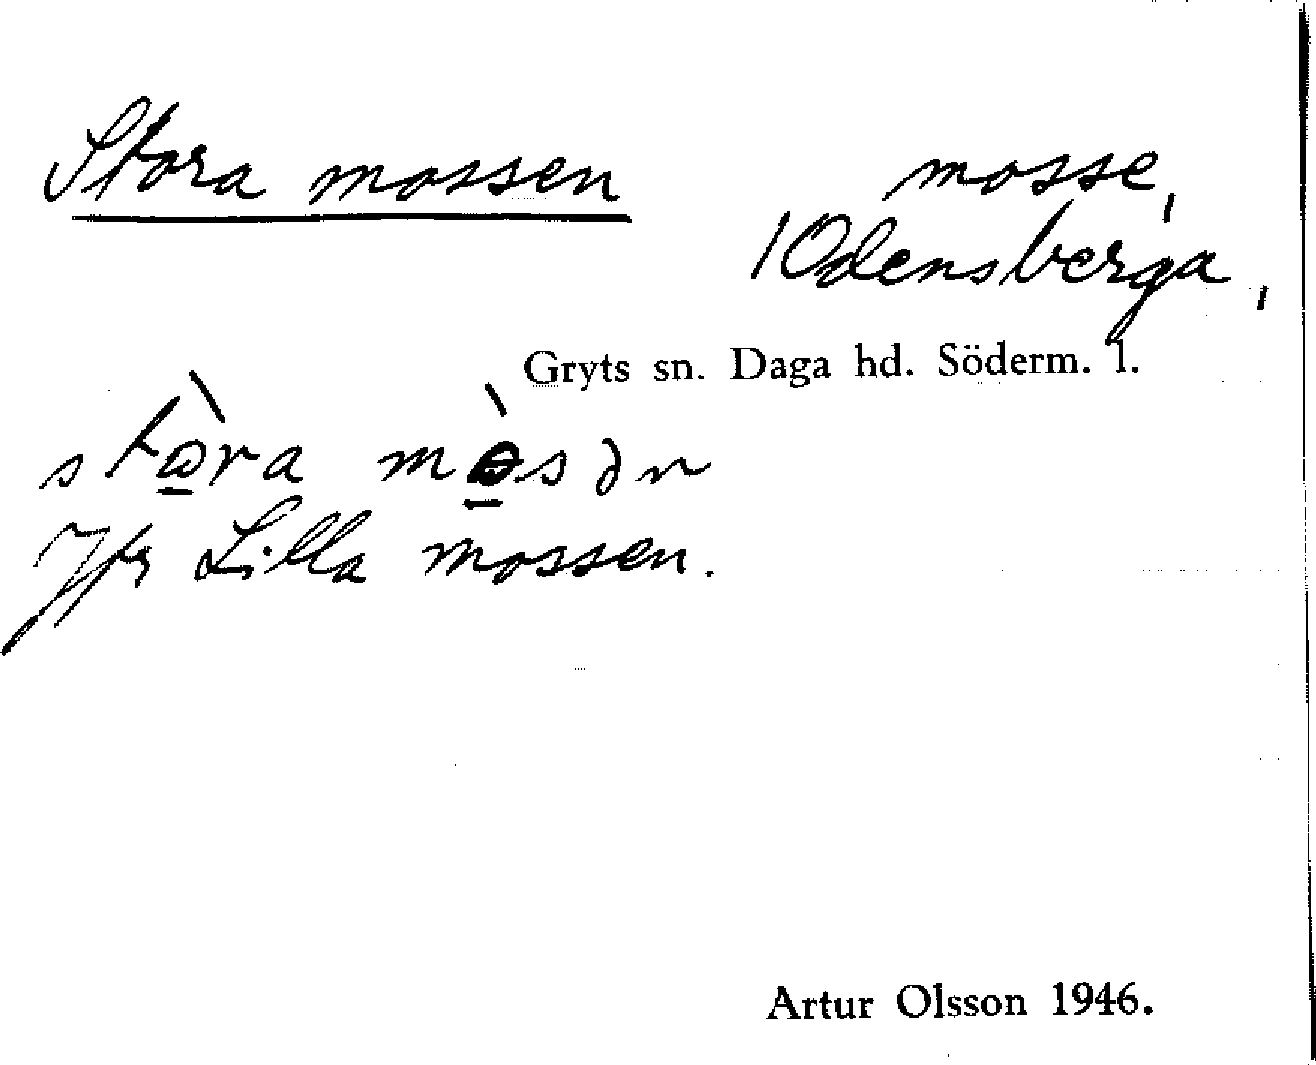 Stora mossen mosse,
/Odensberga,
Gryts sn. Daga hd. Söderm. l.
stὼ̲ra mὼ̲sən
Jfr Lilla mossen.
Artur Olsson 1946.